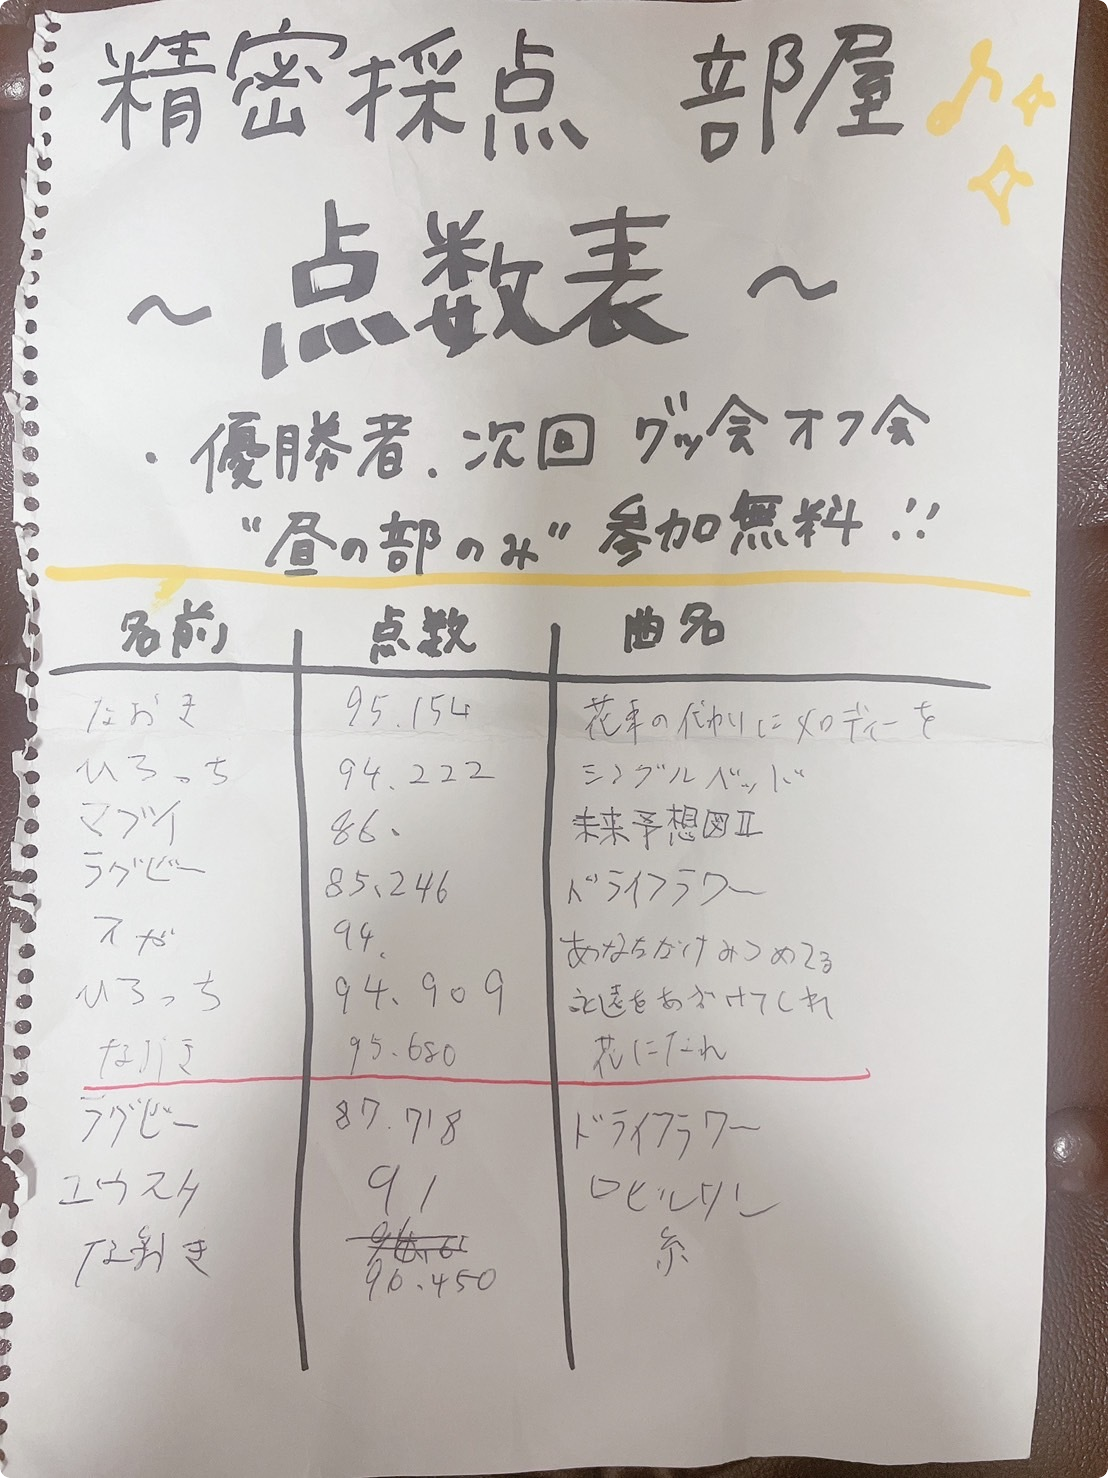 精密採点 部屋
～点数表～
・優勝者、次回 グッ会オフ会
"昼の部のみ" 参加無料!!
名前 点数 曲名
なおき 95.154 花束の代わりにメロディーを
ひろっち 94.222 シングルベッド
マブイ 86. 未来予想図II
ラグビー 85.246 ドライフラワー
スガ 94. あなただけみつめてる
ひろっち 94.909 永遠をあずけてくれ
なおき 95.680 花になれ
ラグビー 87.718 ドライフラワー
ユウスケ 91 ロビンソン
なおき 96.450 糸